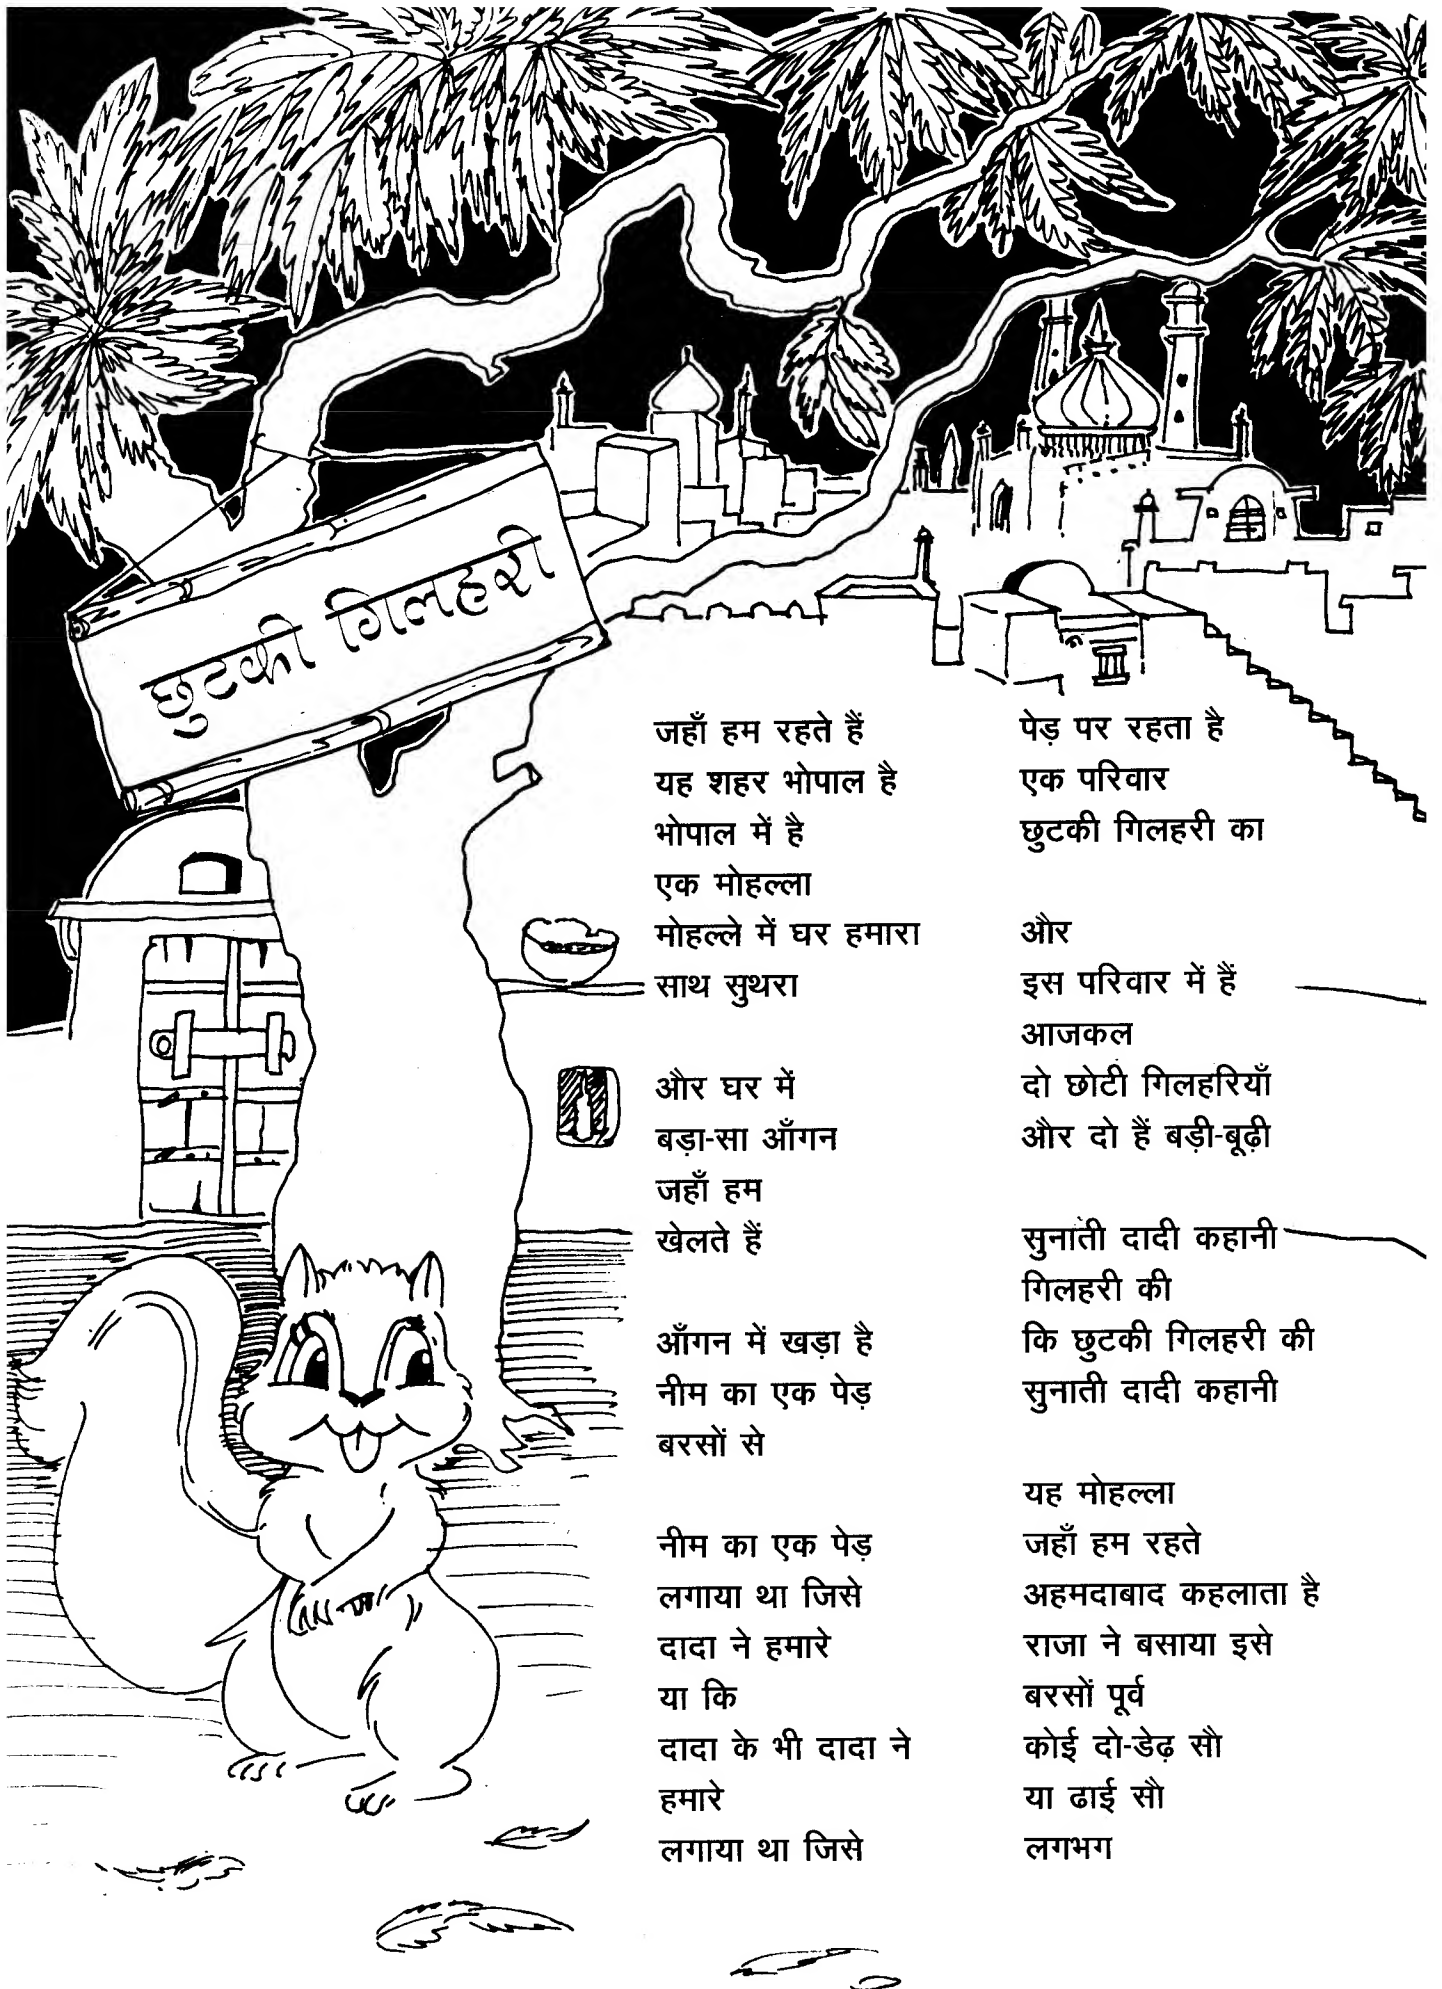 छुटकी गिलहरी
जहाँ हम रहते हैं
यह शहर भोपाल है
भोपाल में है
एक मोहल्ला
मोहल्ले में घर हमारा
साथ सुथरा
और घर में
बड़ा-सा आँगन
जहाँ हम
खेलते हैं
आँगन में खड़ा है
नीम का एक पेड़
बरसों से
नीम का एक पेड़
लगाया था जिसे
दादा ने हमारे
या कि
दादा के भी दादा ने
हमारे
लगाया था जिसे
पेड़ पर रहता है
एक परिवार
छुटकी गिलहरी का
और
इस परिवार में हैं
आजकल
दो छोटी गिलहरियाँ
और दो हैं बड़ी-बूढ़ी
सुनाती दादी कहानी
गिलहरी की
कि छुटकी गिलहरी की
सुनाती दादी कहानी
यह मोहल्ला
जहाँ हम रहते
अहमदाबाद कहलाता है
राजा ने बसाया इसे
बरसों पूर्व
कोई दो-डेढ़ सौ
या ढाई सौ
लगभग